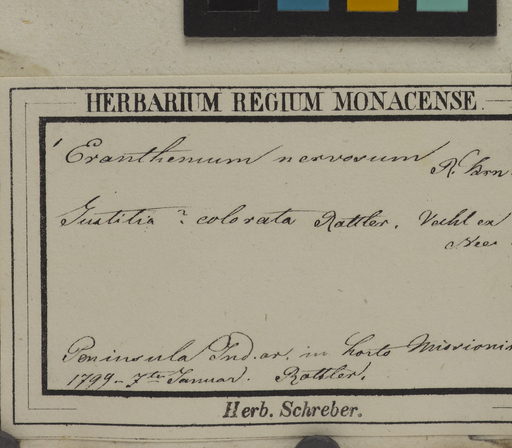 HERBARIUM REGIUM MONACENSE.
Eranthemum nervosum
R. Brn
Justitia ? colorata Rottler. Vachl ex
Nees
Peninsula Ind. or. in horto Missionis
1799 - 7ten Januar. Rottler.
Herb. Schreber.